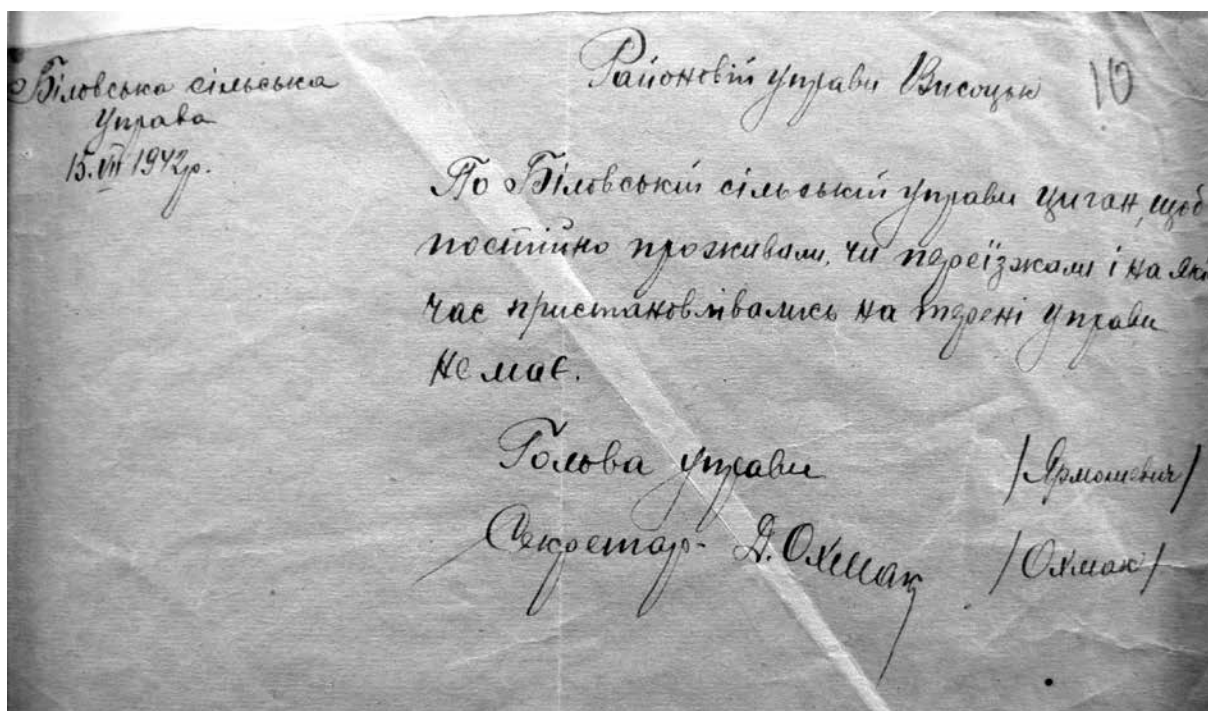 Біловська сільська
Управа
15.VII 1942р.
Районовій управи Висоцьк
10
По Біловській сільській управи циган, щоб
постійно проживали, чи переїзжали і на які
час пристановлівались на терені управи
немає.
Голова управи /Ярмолиевич/
Секретар- Д. Охмак /Охмак/